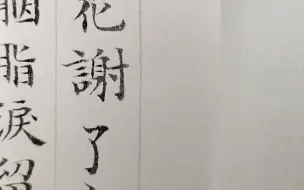 花謝了
胭脂淚留